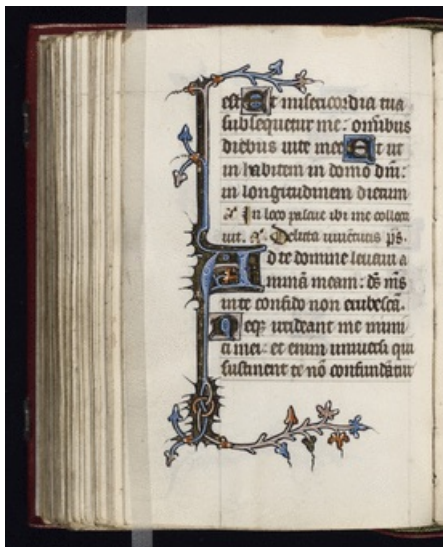 est Et misericordia tua
subsequetur me: omibus
diebus uite mee Et ut
in habitem in domo dm:
in longitudinem dierum
a. In loco pascue ibi me colloca
uit. a. Delicta iuuentutis ps.
Ad te domine leuaui a
nimam meam: ds ms
in te confido non erubesca.
Neqz irrideant me inimi
ci mei: et enim uniuersi qui
sustinent te no confundetur